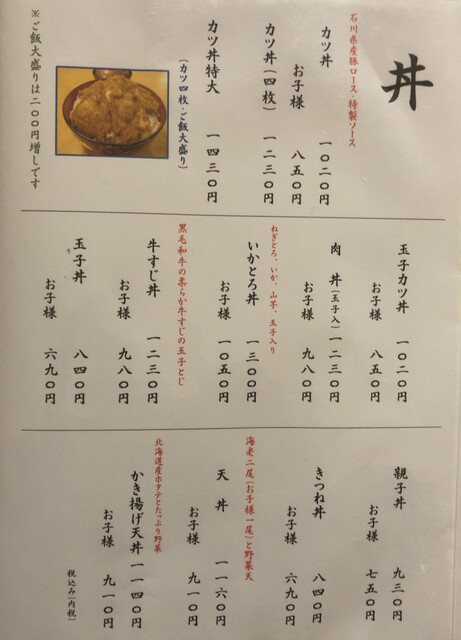 丼
石川県産豚ロース・特製ソース
カツ丼 一〇二〇円
お子様 八五〇円
カツ丼(四枚) 一二三〇円
カツ丼特大 一四三〇円
(カツ四枚・ご飯大盛り)
※ご飯大盛りは二〇〇円増しです
玉子カツ丼 一〇二〇円
お子様 八五〇円
肉丼(玉子入) 一二三〇円
お子様 九八〇円
ねぎとろ、いか、山芋、玉子入り
いかとろ丼 一三〇〇円
お子様 一〇五〇円
黒毛和牛の柔らか牛すじの玉子とじ
牛すじ丼 一二三〇円
お子様 九八〇円
玉子丼 八四〇円
お子様 六九〇円
親子丼 九三〇円
お子様 七五〇円
きつね丼 八四〇円
お子様 六九〇円
海老二尾(お子様一尾)と野菜天
天丼 一一六〇円
お子様 九一〇円
北海道産ホタテとたっぷり野菜
かき揚げ天丼 一一四〇円
お子様 九一〇円
税込み(内税)